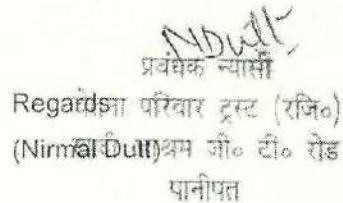 NDutt
प्रबंधक न्यासी
Regards परिवार ट्रस्ट (रजि०)
(Nirmal Dutt) श्रम जी० टी० रोड
पानीपत